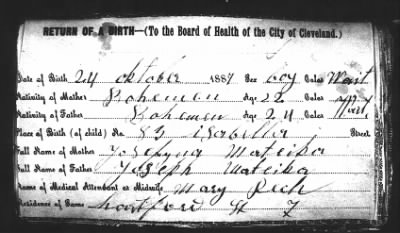 RETURN OF A BIRTH—(To the Board of Health of the City of Cleveland.)
Date of Birth 24 oktober 1887 Sex boy Color Weist
Nativity of Mother Bohemen Age 22 Color Weist
Nativity of Father Bohemen Age 24
Place of Birth (of child) No. 83 isabella Street
Full Name of Mother Josephyna Mateika
Full Name of Father Joseph Mateika
Name of Medical Attendant or Midwife Mary Pech
Residence of Same hartford St 7